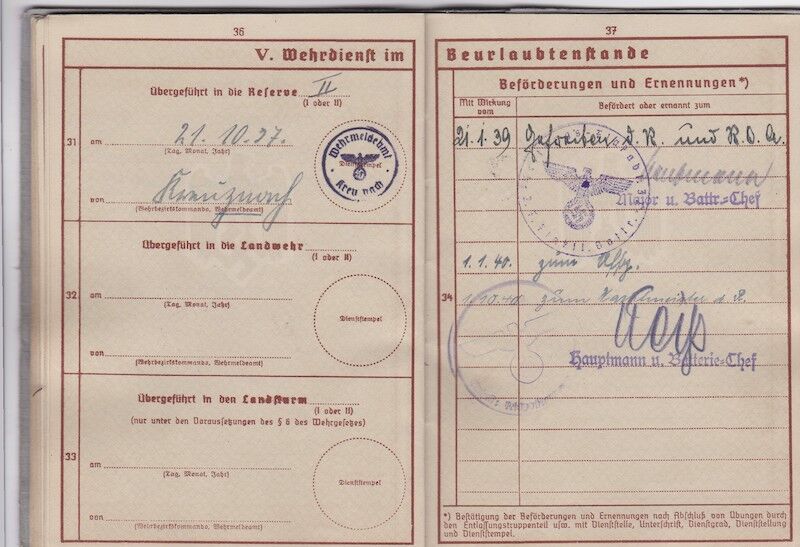 36
V. Wehrdienst im
Übergeführt in die Reserve II
(I oder II)
31
am 21.10.37.
(Tag, Monat, Jahr)
von Kreuznach
(Wehrbezirkskommando, Wehrmeldeamt)
Wehrmeldeamt
Dienststempel
Kreuznach
Übergeführt in die Landwehr
(I oder II)
32
am
(Tag, Monat, Jahr)
von
(Wehrbezirkskommando, Wehrmeldeamt)
Dienststempel
Übergeführt in den Landsturm
(I oder II)
(nur unter den Voraussetzungen des § 6 des Wehrgesetzes)
33
am
(Tag, Monat, Jahr)
von
(Wehrbezirkskommando, Wehrmeldeamt)
Dienststempel
37
Beurlaubtenstande
Beförderungen und Ernennungen*)
Mit Wirkung vom
Befördert oder ernannt zum
21.1.39 Gefreiten d. R. und R.O.A.
Major u. Battr.-Chef
1.1.40. zum Uffz.
34
1.10.40 zum Wachtmeister d. R.
Hauptmann u. Batterie-Chef
*) Bestätigung der Beförderungen und Ernennungen nach Abschluß von Übungen durch
den Entlassungstruppenteil usw. mit Dienststelle, Unterschrift, Dienstgrad, Dienststellung
und Dienststempel.